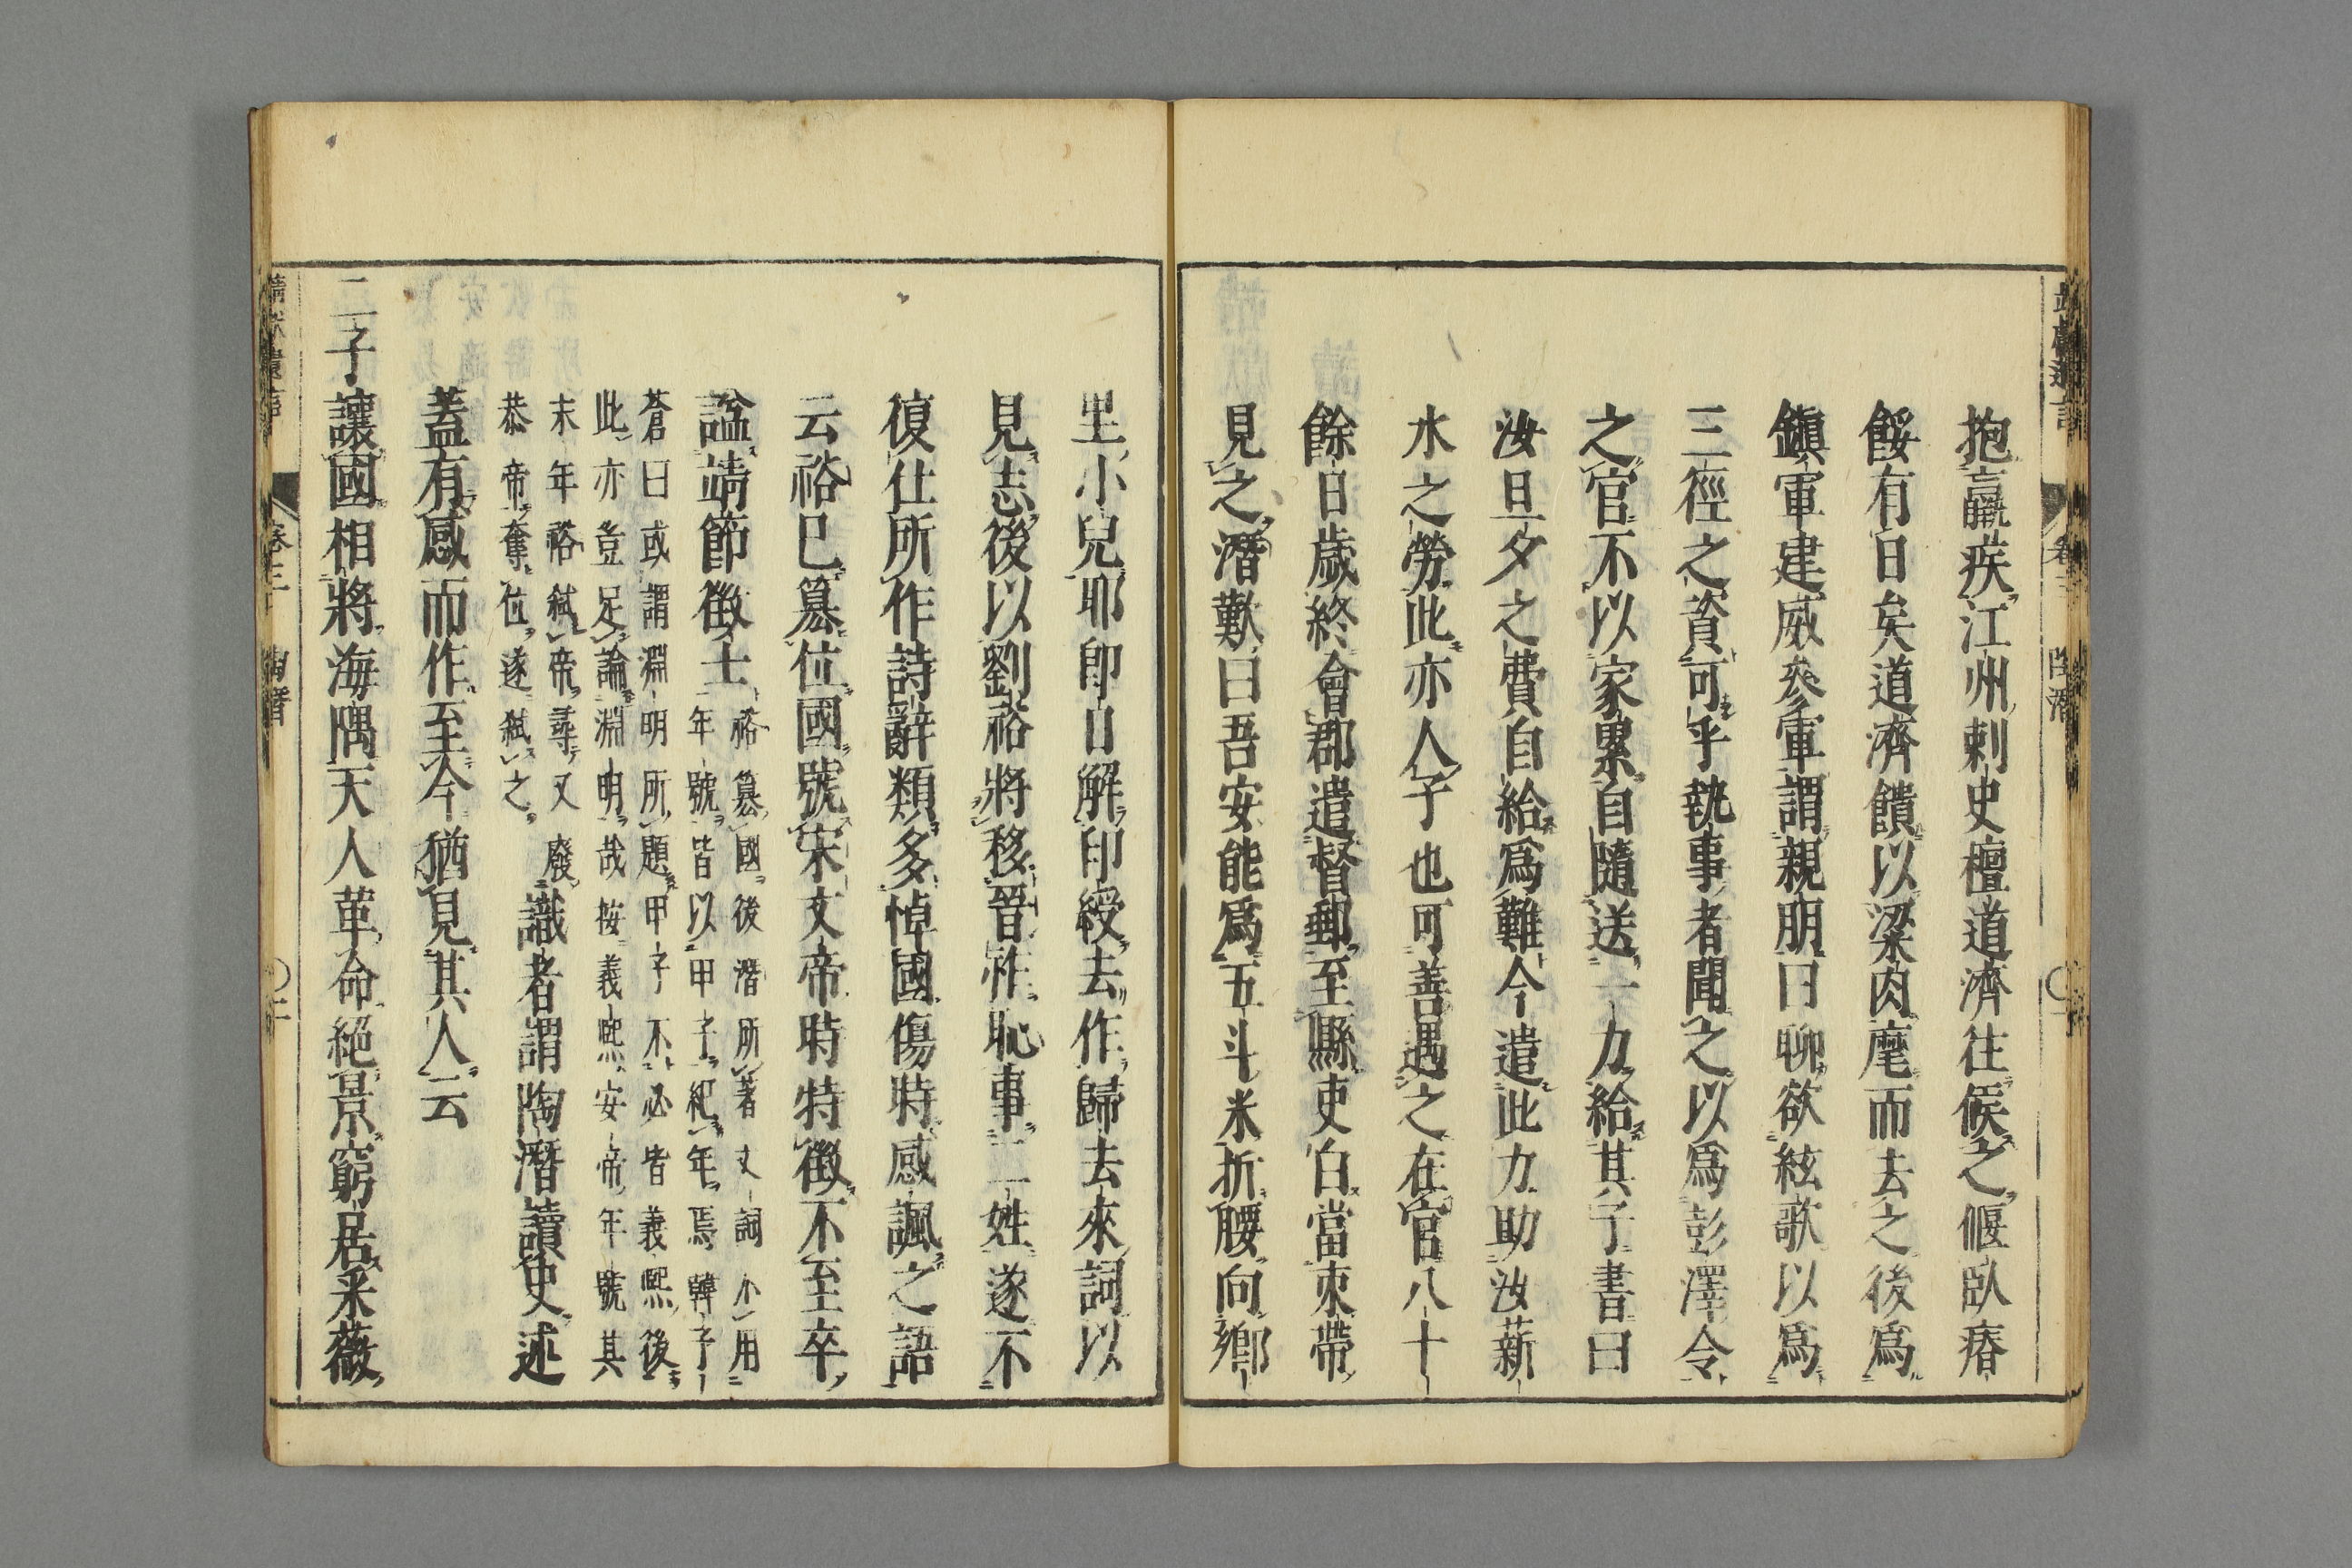 抱羸疾江州刺史檀道濟往候之偃臥瘠
餒有日矣道濟饋以梁肉麾而去之後爲
鎭軍建威參軍謂親朋曰聊欲絃歌以爲
三徑之資可乎執事者聞之以爲彭澤令
之官不以家累自隨送一力給其子書曰
汝旦夕之費自給爲難今遣此力助汝薪
水之勞此亦人子也可善遇之在官八十
餘日歲終會郡遣督郵至縣吏白當束帶
見之潛歎曰吾安能爲五斗米折腰向鄉
里小兒耶卽日解印綬去作歸去來詞以
見志後以劉裕將移晉祚恥事二姓遂不
復仕所作詩辭類多悼國傷時感諷之語
云裕巳簒位國號宋文帝時特徵不至卒
諡靖節徵士
裕簒國後潛所著文詞不用
年號皆以甲子紀年焉韓子
蒼曰或謂淵明所題甲子不必皆義熙後
此亦豈足論淵明哉按義熙安帝年號其
末年裕弑帝尋又廢
恭帝奪位遂弑之
識者謂陶潛讀史述
蓋有感而作至今猶見其人云
二子讓國相將海隅天人革命絕景窮居采薇
卷三
陶潛
〇二